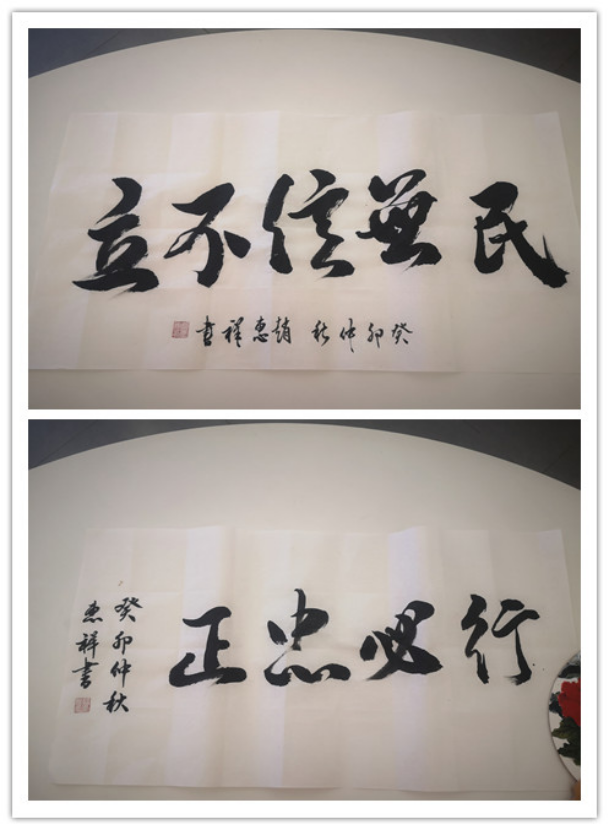 民無信不立
癸卯仲秋 趙惠祥書
行必忠正
癸卯仲秋
惠祥書